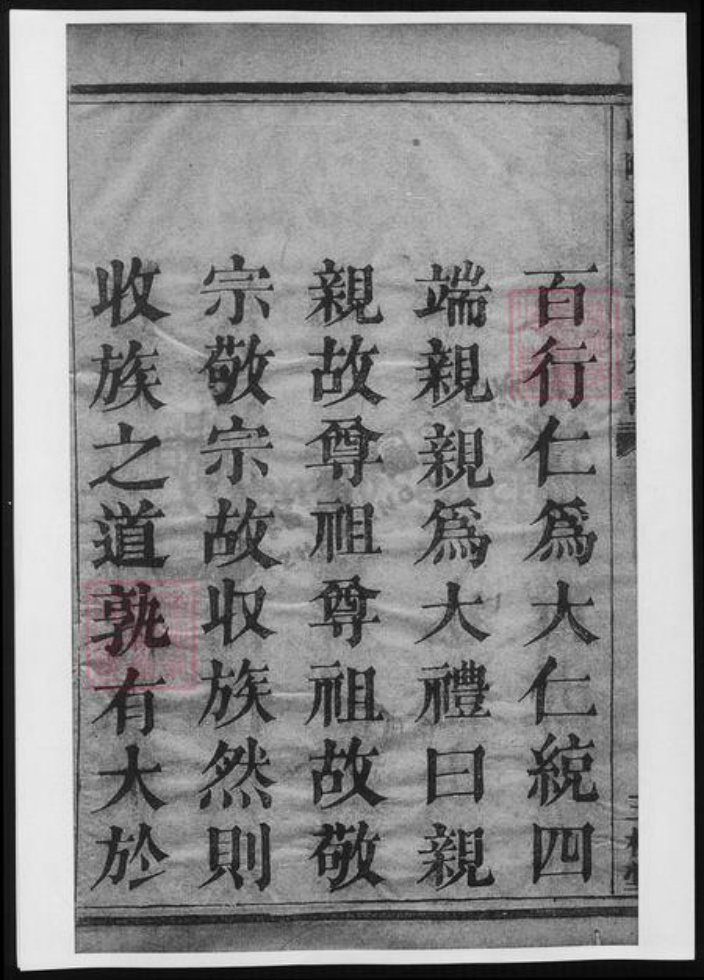 百行仁爲大仁統四
端親親爲大禮曰親
親故尊祖尊祖故敬
宗敬宗故收族然則
收族之道孰有大於